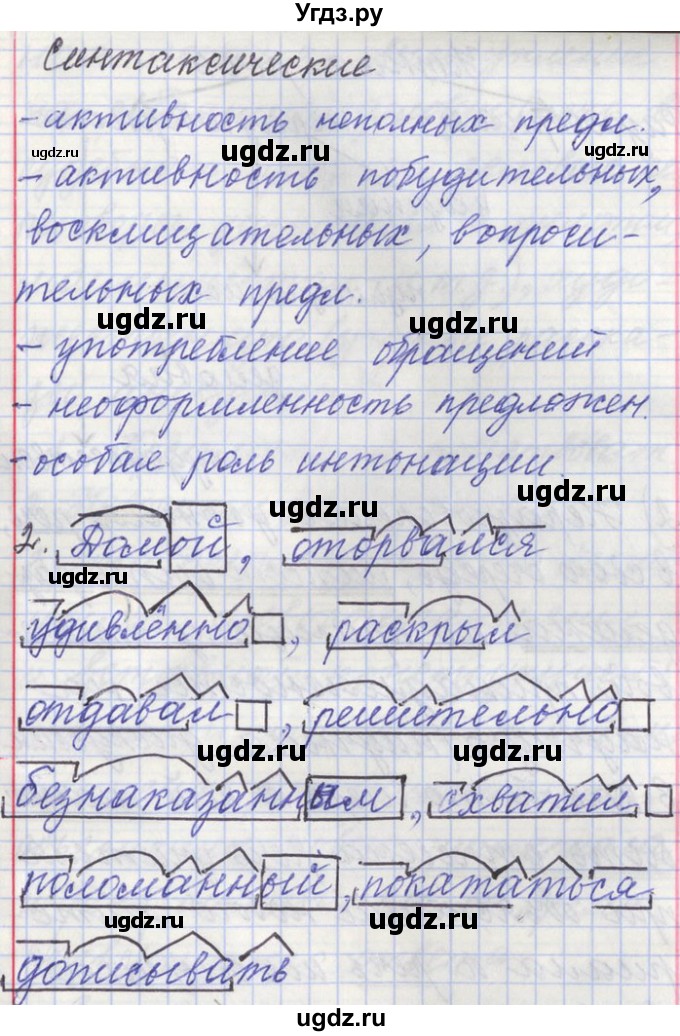 Угдз.ру
Синтаксические
- активность неполных предл.
ugdz.ru ugdz.ru ugdz.ru
- активность побудительных,
восклицательных, вопроси-
тельных предл.
ugdz.ru ugdz.ru
- употребление обращений
- неоформленность предложен.
- особая роль интонации.
ugdz.ru ugdz.ru
2. Домой, оторвался
ugdz.ru ugdz.ru
удивлённо, раскрыл
отдавал, решительно
ugdz.ru ugdz.ru
безнаказанным, схватил
поломанный, покататься
ugdz.ru ugdz.ru
дописывать
ugdz.ru